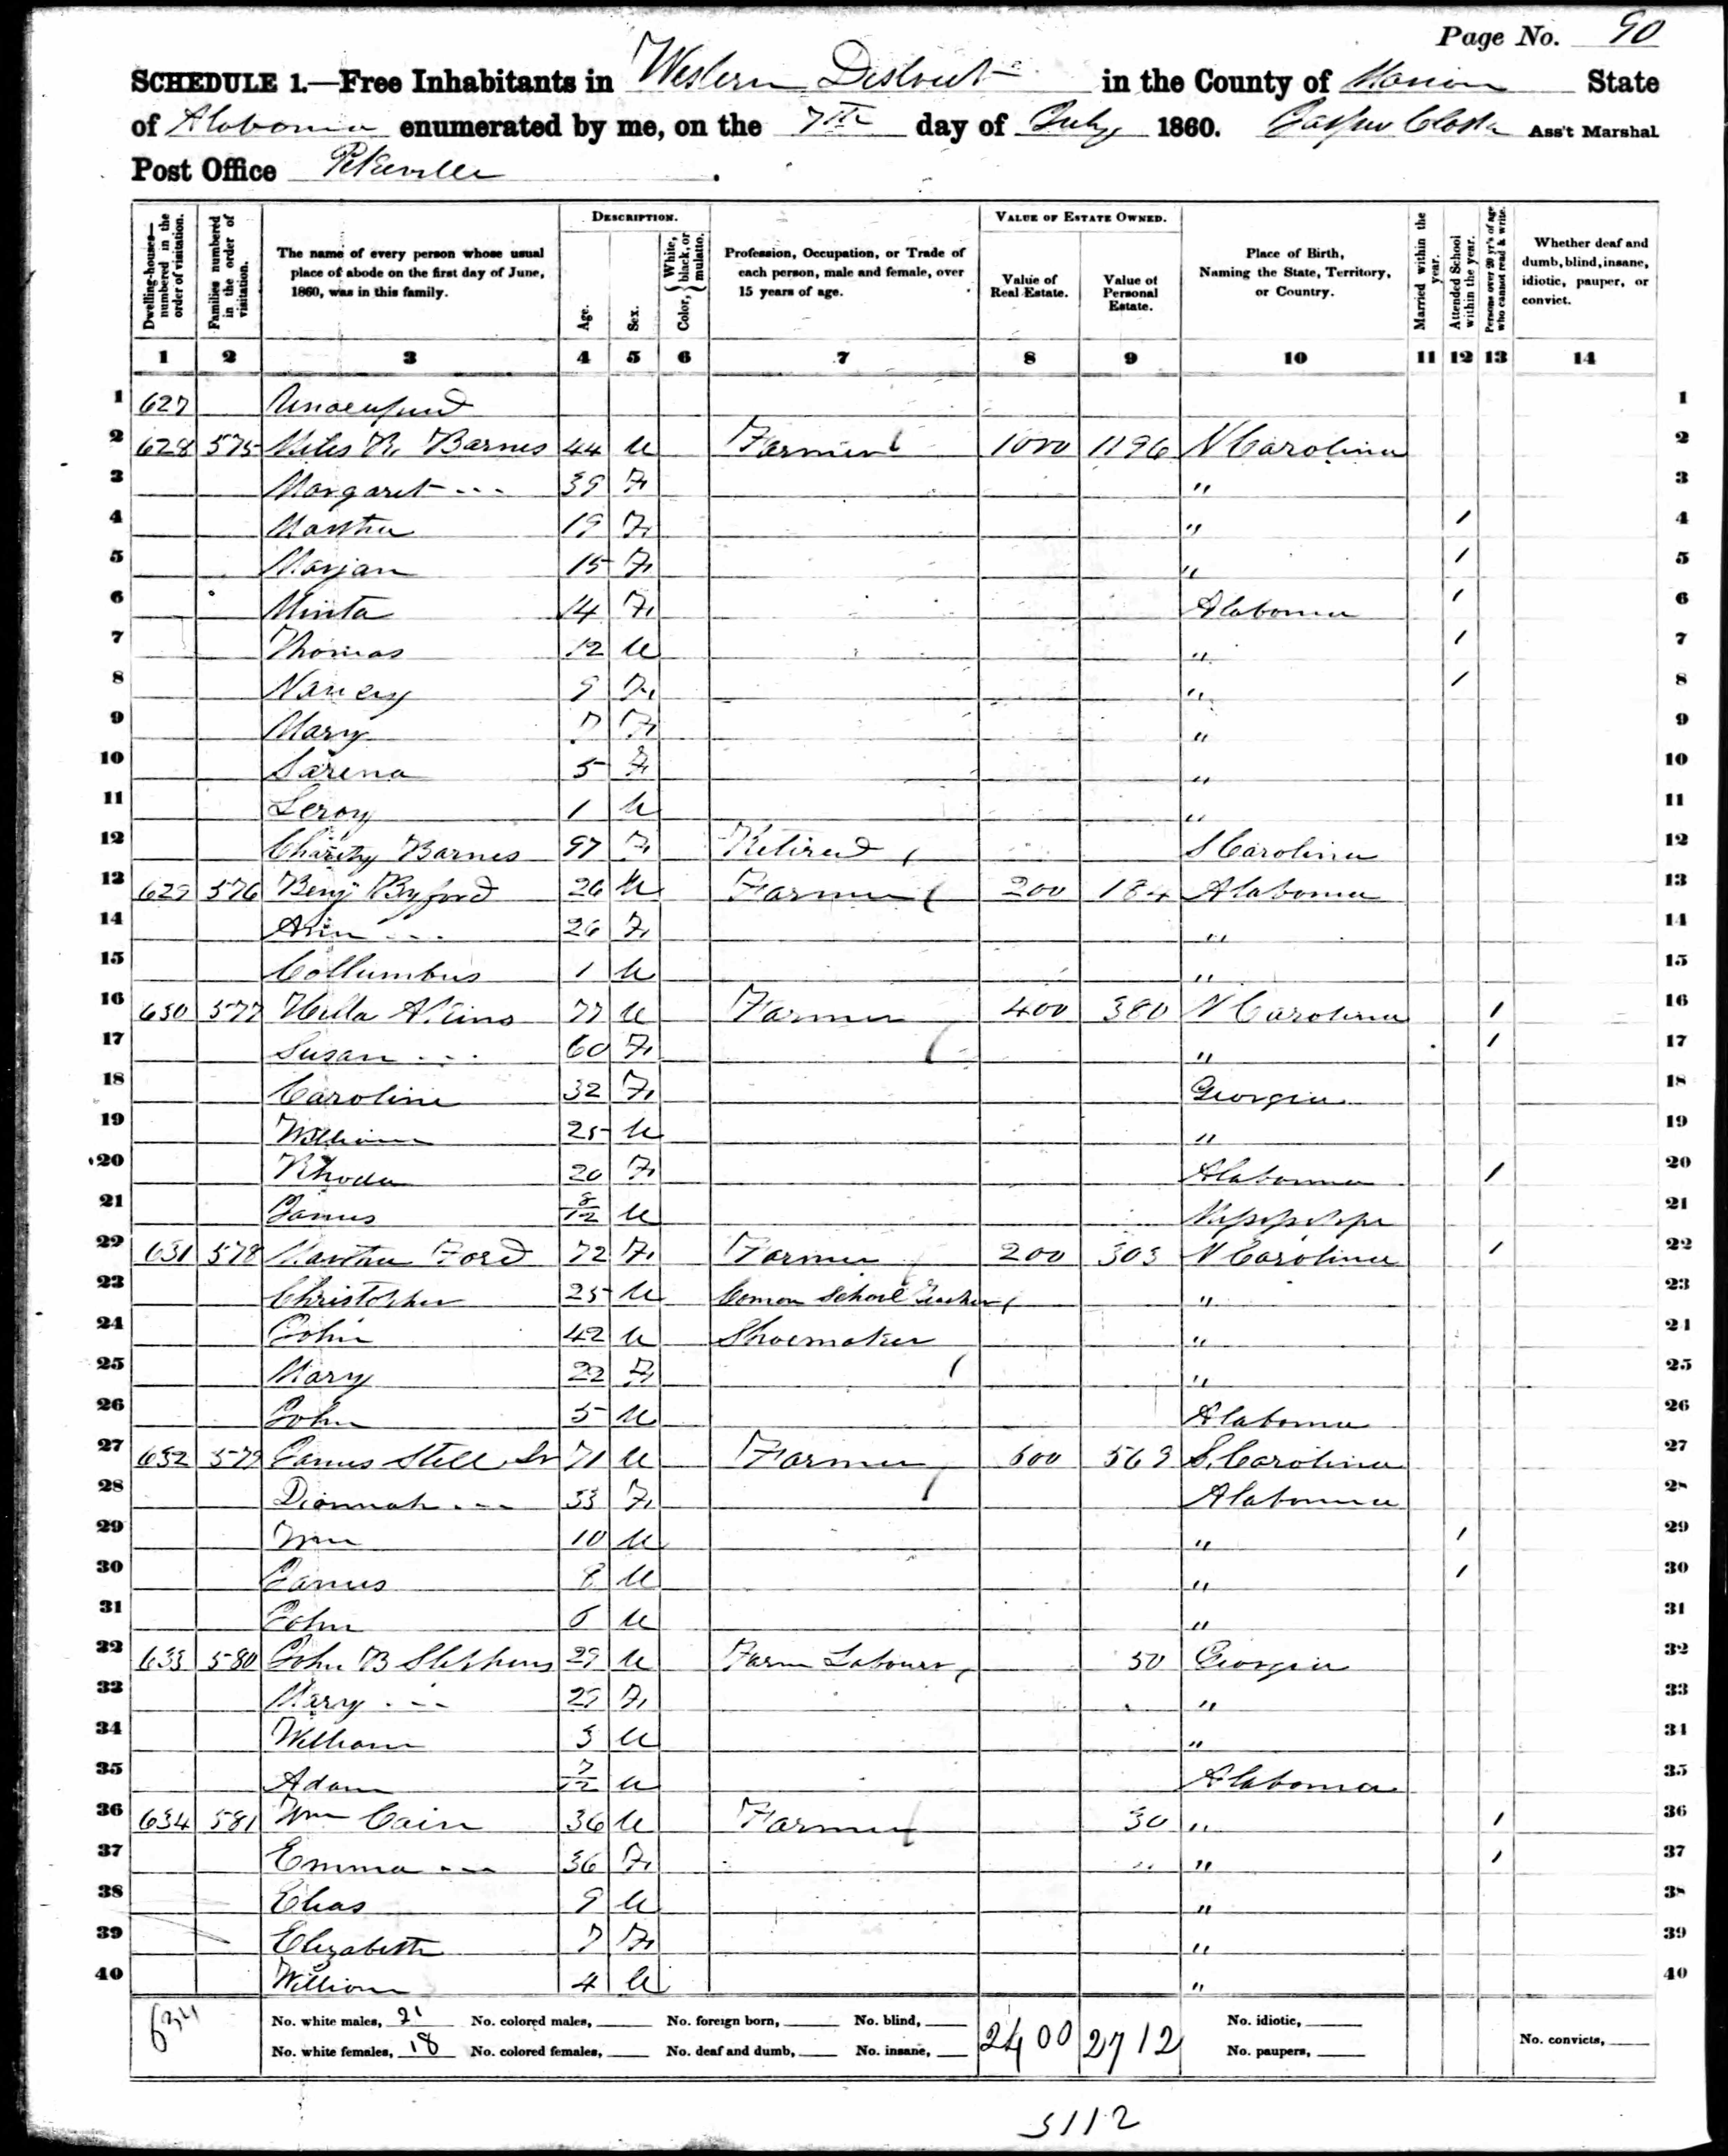 Page No. 90
SCHEDULE 1.—Free Inhabitants in Western District in the County of Marion State
of Alabama enumerated by me, on the 7th day of July 1860. Ass't Marshal
Post Office Pikeville
Dwelling-houses—numbered in the order of visitation.
Families numbered in the order of visitation.
The name of every person whose usual place of abode on the first day of June, 1860, was in this family.
DESCRIPTION.
Age.
Sex.
Color, { White, black, or mulatto.
Profession, Occupation, or Trade of each person, male and female, over 15 years of age.
VALUE OF ESTATE OWNED.
Value of Real Estate.
Value of Personal Estate.
Place of Birth, Naming the State, Territory, or Country.
Married within the year.
Attended School within the year.
Persons over 20 yr's of age who cannot read & write.
Whether deaf and dumb, blind, insane, idiotic, pauper, or convict.
1 2 3 4 5 6 7 8 9 10 11 12 13 14
1 627 1
2 628 575 Miles R. Barnes 44 M Farmer 1000 1196 N Carolina 2
3 Margaret --- 39 F " 3
4 Martha 19 F " / 4
5 Marjan 15 F " / 5
6 Minta 14 F Alabama / 6
7 Thomas 12 M " / 7
8 Nancy 9 F " / 8
9 Mary 7 F " 9
10 Sarena 5 F " 10
11 Leroy 1 M " 11
12 Charity Barnes 97 F Retired S Carolina 12
13 629 576 Benj Byford 26 M Farmer 200 184 Alabama 13
14 Ann --- 26 F " 14
15 Collumbus 1 M " 15
16 630 577 Akins 77 M Farmer 400 380 N Carolina / 16
17 Susan --- 60 F " / 17
18 Caroline 32 F Georgia 18
19 William 25 M " 19
20 Rhoda 20 F Alabama / 20
21 James 8/12 M Mississippi 21
22 631 578 Martha Ford 72 F Farmer 200 303 N Carolina / 22
23 Christopher 25 M Comon School Teacher " 23
24 John 42 M Shoemaker " 24
25 Mary 22 F " 25
26 John 5 M Alabama 26
27 632 579 James Stell Sr 71 M Farmer 600 569 S. Carolina 27
28 Dionnah --- 33 F Alabama 28
29 Wm 10 M " / 29
30 James 8 M " / 30
31 John 6 M " 31
32 633 580 John B Stephens 29 M Farm Labourr 50 Georgia 32
33 Mary --- 29 F " 33
34 William 3 M " 34
35 Adam 7/12 M Alabama 35
36 634 581 Wm Cain 36 M Farmer 30 " / 36
37 Emma --- 36 F " / 37
38 Elias 9 M " 38
39 Elizabeth 7 F " 39
40 William 4 M " 40
634 No. white males, 21 No. colored males, No. foreign born, No. blind, 2400 2712 No. idiotic, No. convicts,
No. white females, 18 No. colored females, No. deaf and dumb, No. insane, No. paupers,
5112